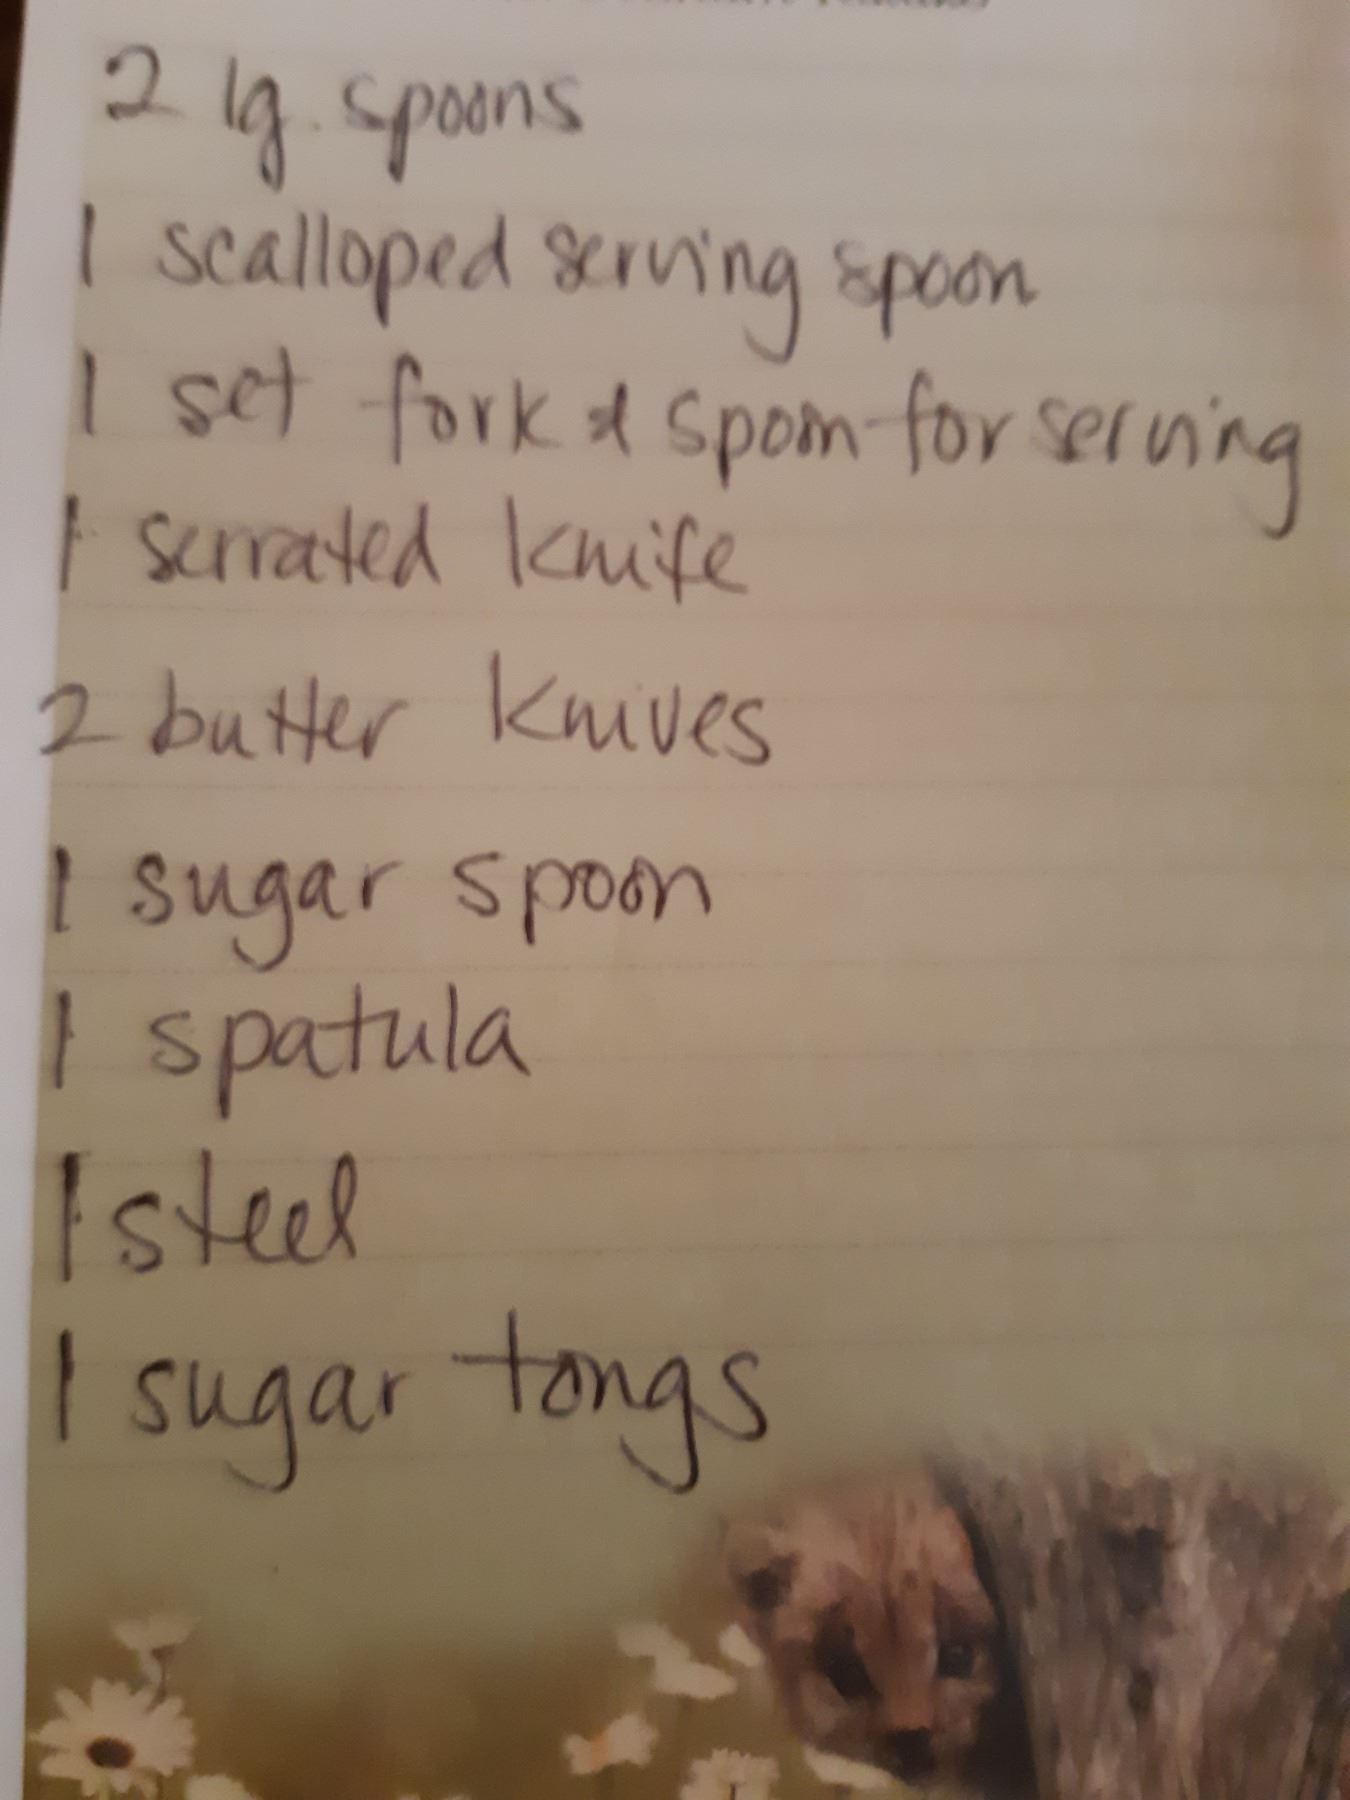 2 lg. spoons
1 scalloped serving spoon
1 set fork & spoon for serving
1 serrated knife
2 butter knives
1 sugar spoon
1 spatula
1 steel
1 sugar tongs